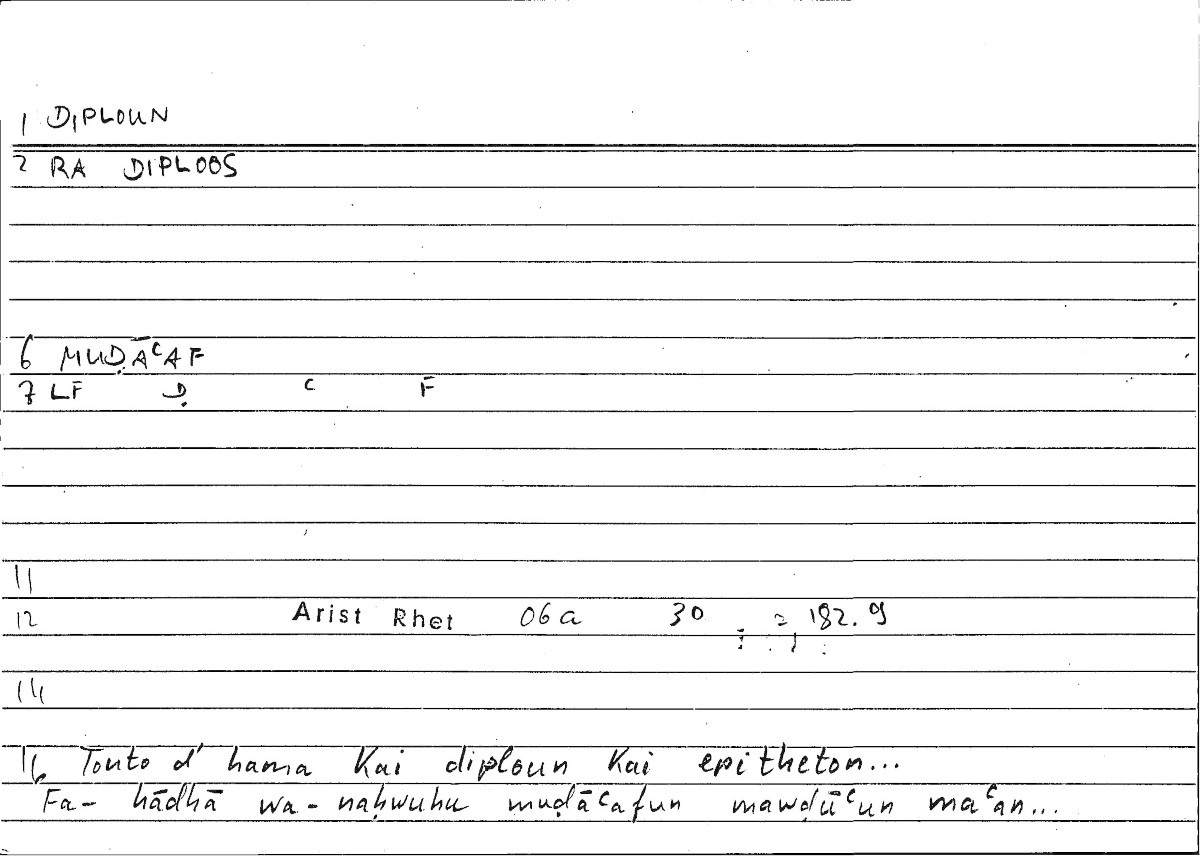 1 DIPLOUN
2 RA DIPLOOS
6 MUḌĀᶜAF
7 LF Ḍ ᶜ F
11
12 Arist Rhet 06a 30 = 182.9
14
16 Touto d' hama kai diploun kai epitheton...
Fa- hādhā wa-naḥwuhu muḍāᶜafun mawḍūᶜun maᶜan...